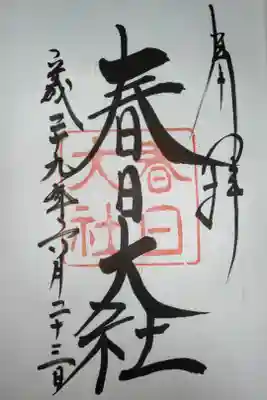 奉拝
春日大社
春日大社
平成二十九年六月二十三日